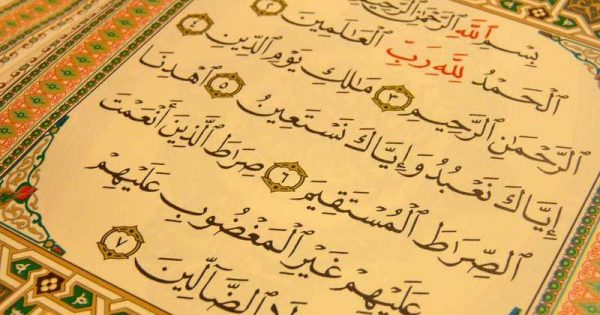 بِسْمِ ٱللَّهِ ٱلرَّحْمَٰنِ ٱلرَّحِيمِ
ٱلْحَمْدُ لِلَّهِ رَبِّ ٱلْعَالَمِينَ ٢
ٱلرَّحْمَٰنِ ٱلرَّحِيمِ ٣ مَالِكِ يَوْمِ ٱلدِّينِ ٤
إِيَّاكَ نَعْبُدُ وَإِيَّاكَ نَسْتَعِينُ ٥ ٱهْدِنَا
ٱلصِّرَاطَ ٱلْمُسْتَقِيمَ ٦ صِرَاطَ ٱلَّذِينَ أَنْعَمْتَ
عَلَيْهِمْ غَيْرِ ٱلْمَغْضُوبِ عَلَيْهِمْ
لَا ٱلضَّآلِّينَ ٧